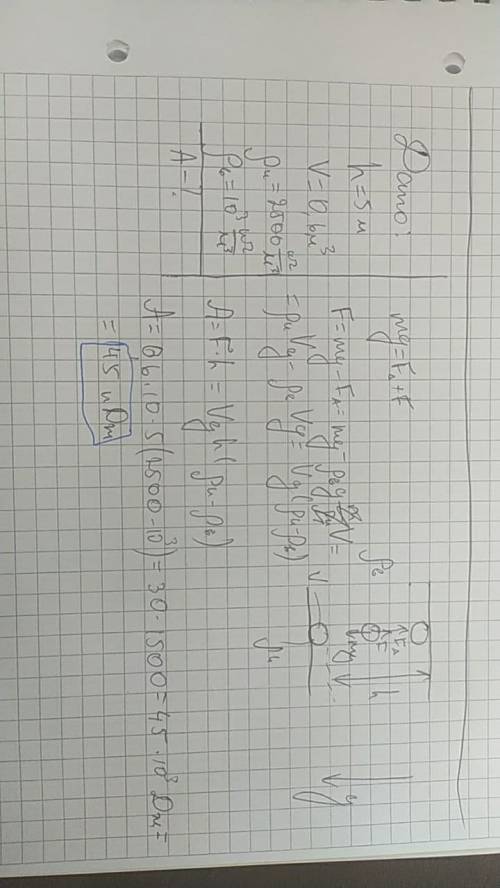 Дано:
h = 5 м
V = 0,6 м³
ρк = 2500 кг/м³
ρв = 10³ кг/м³
A – ?
mg = FA + F
F = mg – FA = mg – ρв g V =
= ρк Vg – ρв Vg = Vg (ρк – ρв)
A = F·h = Vgh (ρк – ρв)
A = 0,6·10·5 (2500 – 10³) = 30·1500 = 45·10³ Дж =
= 45 кДж
ρв
FA
F
mg
h
V
ρк
g
y